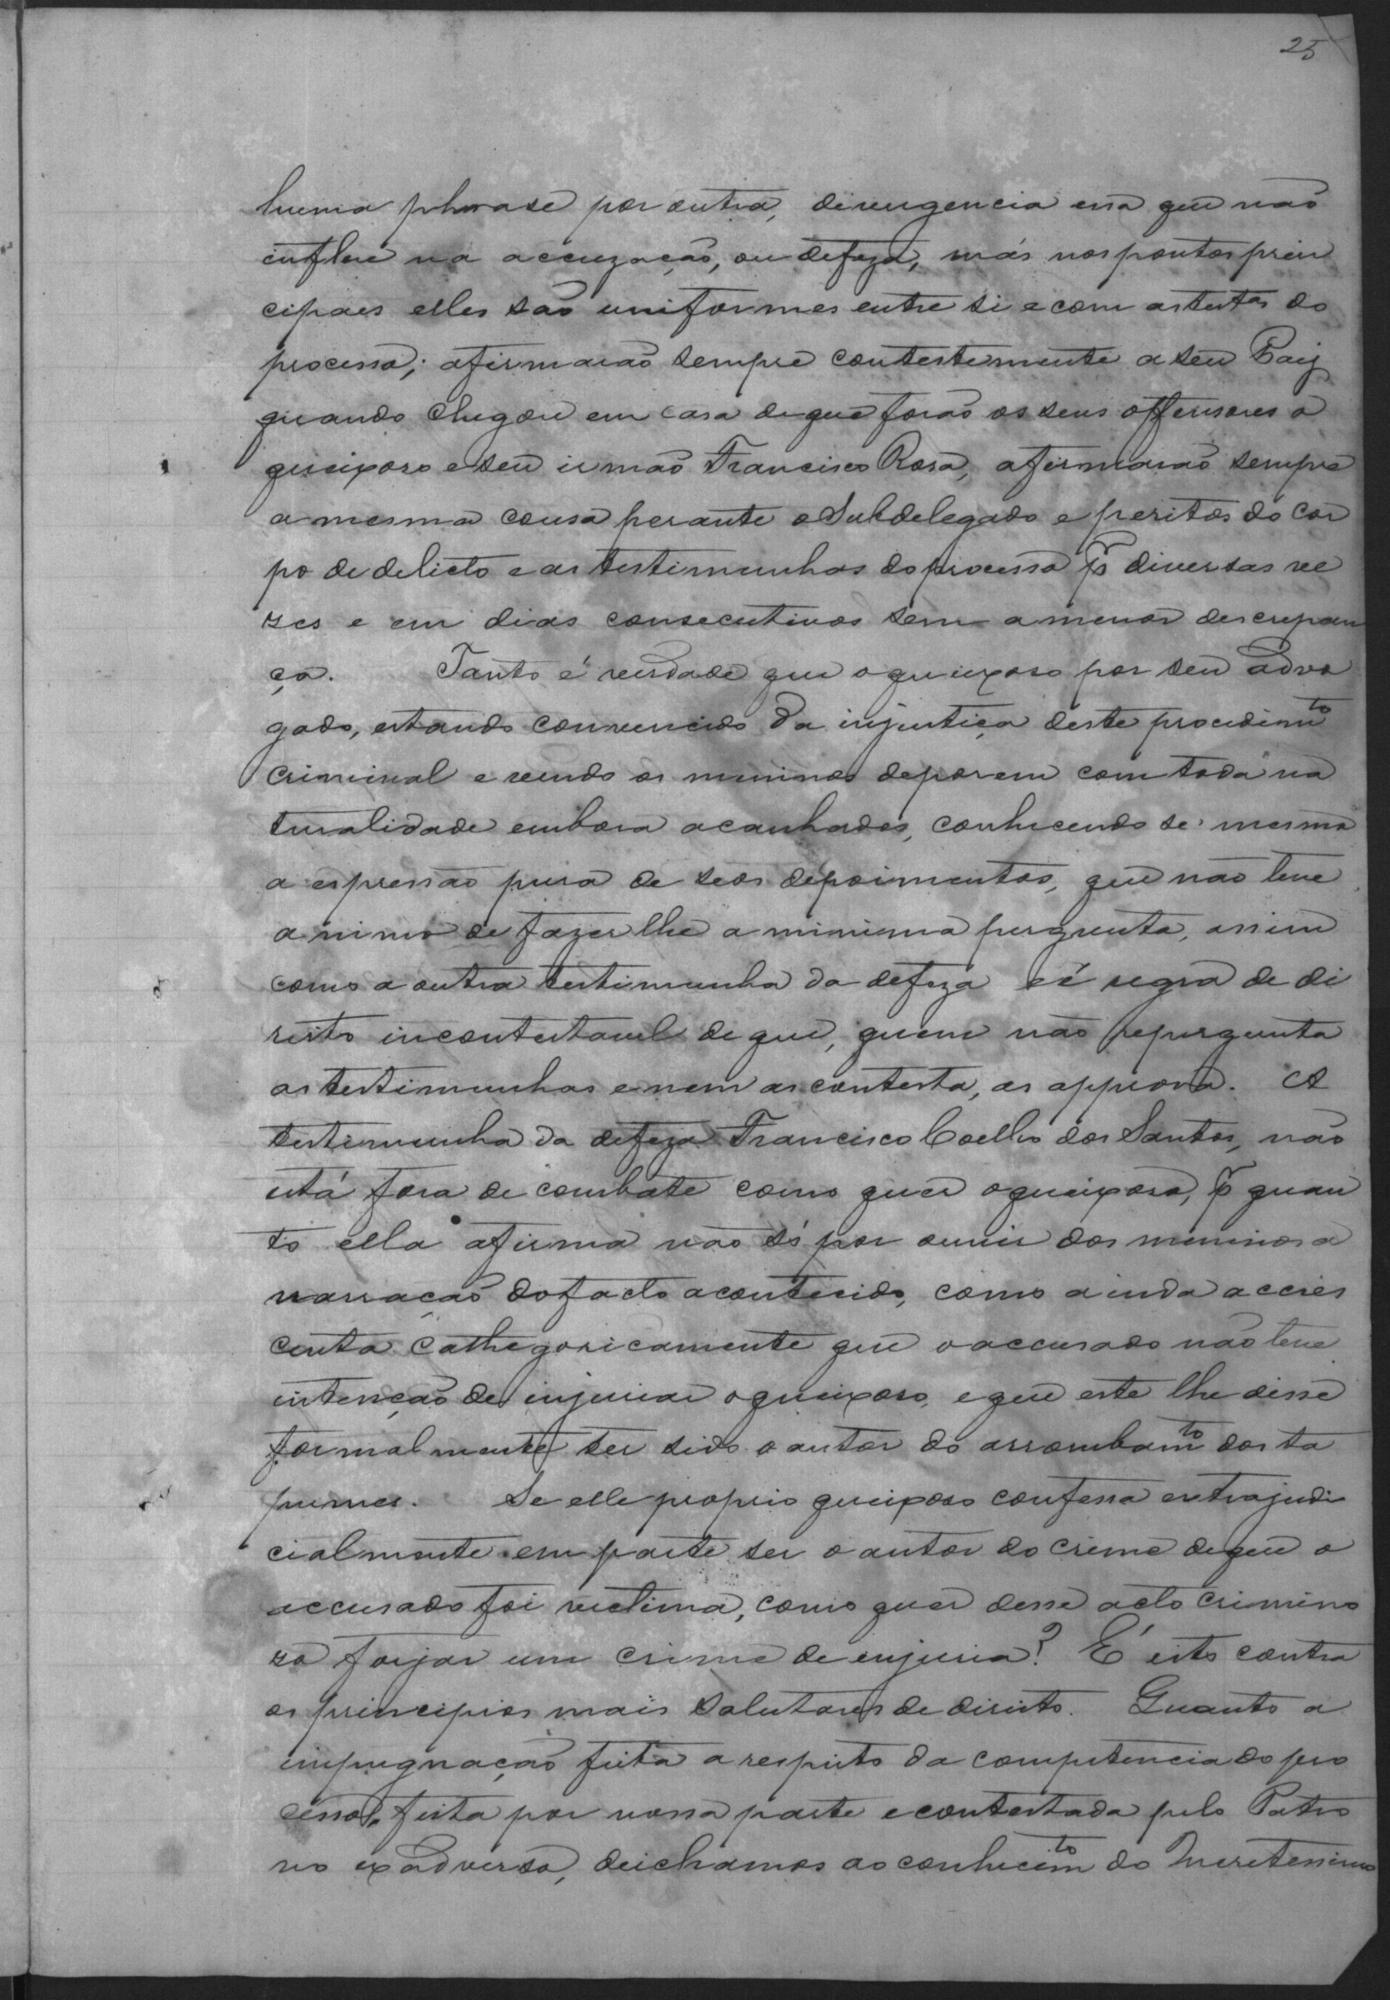 25
huma phrase por outra, divergencia essa que não
influe na accuzação, ou defeza, más nos pontos prin
cipaes elles são uniformes entre si e com as testas do
processo; afirmarão sempre contestemente a seu Paij
quando chegou em casa de que forão os seus offensores o
queixoso e seu irmão Francisco Rosa, afirmarão sempre
a mesma cousa perante o Subdelegado e peritos do cor
po de delicto e as testimunhas do processo p͂ diversas ve
zes e em dias consecutivos sem a menor descrepan
ça. Tanto é verdade que o queixoso por seu advo
gado, estando convencido da injustiça deste procedimto
criminal e vendo os meninos deporem com toda na
turalidade embora acanhados, conhecendo se mesmo
a espressão pura de seos depoimentos, que não teve
animo de fazer lhe a minima pergunta, assim
como a outra testimunha da defeza e é regra de di
reito incontestavel de que, quem não repergunta
as testimunhas e nem as contesta, as approva. A
testimunha da defeza Francisco Coelho dos Santos, não
está fora de combate como quer o queixoso, p͂ quan
to ella afirma não só por ouvir dos meninos a
narração do facto acontecido, como ainda accres
centa cathegoricamente que o accusado não teve
intenção de injuriar o queixoso, e que este lhe disse
formalmente ter sido o autor do arrombamto dos ta
pumes. Se elle proprio queixoso confessa extrajudi
cialmente em parte ser o autor do crime de que o
accusado foi victima, como quer desse acto crimino
zo forjar um crime de injuria? É isto contra
os principios mais salutares de direito. Quanto a
impugnação feita a respeito da competencia do pro
cesso, feita por nossa parte e contestada pelo Patro
no ex adverso, deichamos ao conhecimto do Meretessimo